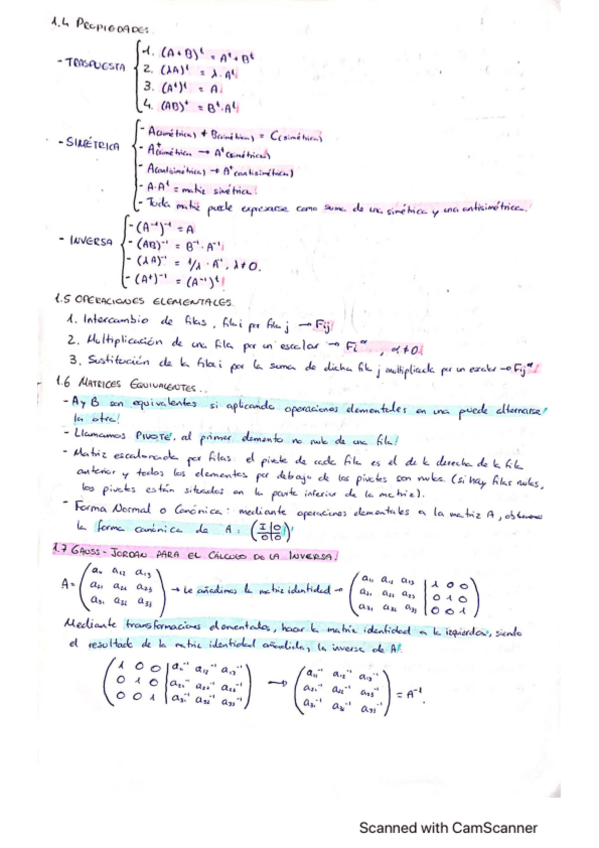 1.4 PROPIEDADES.
- TRASPUESTA
1. (A+B)ᵗ = Aᵗ + Bᵗ
2. (λA)ᵗ = λ·Aᵗ
3. (Aᵗ)ᵗ = A
4. (AB)ᵗ = Bᵗ·Aᵗ
- SIMÉTRICA
- A(simétrica) + B(simétrica) = C(simétrica)
- A(simétrica) → Aᵗ(simétrica)
- A(antisimétrica) → Aᵗ(antisimétrica)
- A·Aᵗ = matriz simétrica
- Toda matriz puede expresarse como suma de una simétrica y una antisimétrica.
- INVERSA
- (A⁻¹)⁻¹ = A
- (AB)⁻¹ = B⁻¹·A⁻¹
- (λA)⁻¹ = 1/λ · A⁻¹, λ≠0.
- (Aᵗ)⁻¹ = (A⁻¹)ᵗ
1.5 OPERACIONES ELEMENTALES
1. Intercambio de filas, fila i por fila j → Fij
2. Multiplicación de una fila por un escalar → Fi^α, α≠0
3. Sustitución de la fila i por la suma de dicha fila j multiplicada por un escalar → Fij^α
1.6 MATRICES EQUIVALENTES.
- A y B son equivalentes si aplicando operaciones elementales en una puede alternarse
la otra
- Llamamos PIVOTE, al primer elemento no nulo de una fila
- Matriz escalonada por filas: el pivote de cada fila es el de la derecha de la fila
anterior y todos los elementos por debajo de los pivotes son nulos. (si hay filas nulas,
los pivotes están situados en la parte inferior de la matriz).
- Forma Normal o Canónica: mediante operaciones elementales a la matriz A, obtenemos
la forma canónica de A: (I|0 / 0|0)
1.7 GAUSS-JORDAN PARA EL CÁLCULO DE LA INVERSA
A = (a₁₁ a₁₂ a₁₃ / a₂₁ a₂₂ a₂₃ / a₃₁ a₃₂ a₃₃) → Le añadimos la matriz identidad → (a₁₁ a₁₂ a₁₃ | 1 0 0 / a₂₁ a₂₂ a₂₃ | 0 1 0 / a₃₁ a₃₂ a₃₃ | 0 0 1)
Mediante transformaciones elementales, hacer la matriz identidad a la izquierda, siendo
el resultado de la matriz identidad añadida, la inversa de A
(1 0 0 | a₁₁⁻¹ a₁₂⁻¹ a₁₃⁻¹ / 0 1 0 | a₂₁⁻¹ a₂₂⁻¹ a₂₃⁻¹ / 0 0 1 | a₃₁⁻¹ a₃₂⁻¹ a₃₃⁻¹) → (a₁₁⁻¹ a₁₂⁻¹ a₁₃⁻¹ / a₂₁⁻¹ a₂₂⁻¹ a₂₃⁻¹ / a₃₁⁻¹ a₃₂⁻¹ a₃₃⁻¹) = A⁻¹.
Scanned with CamScanner